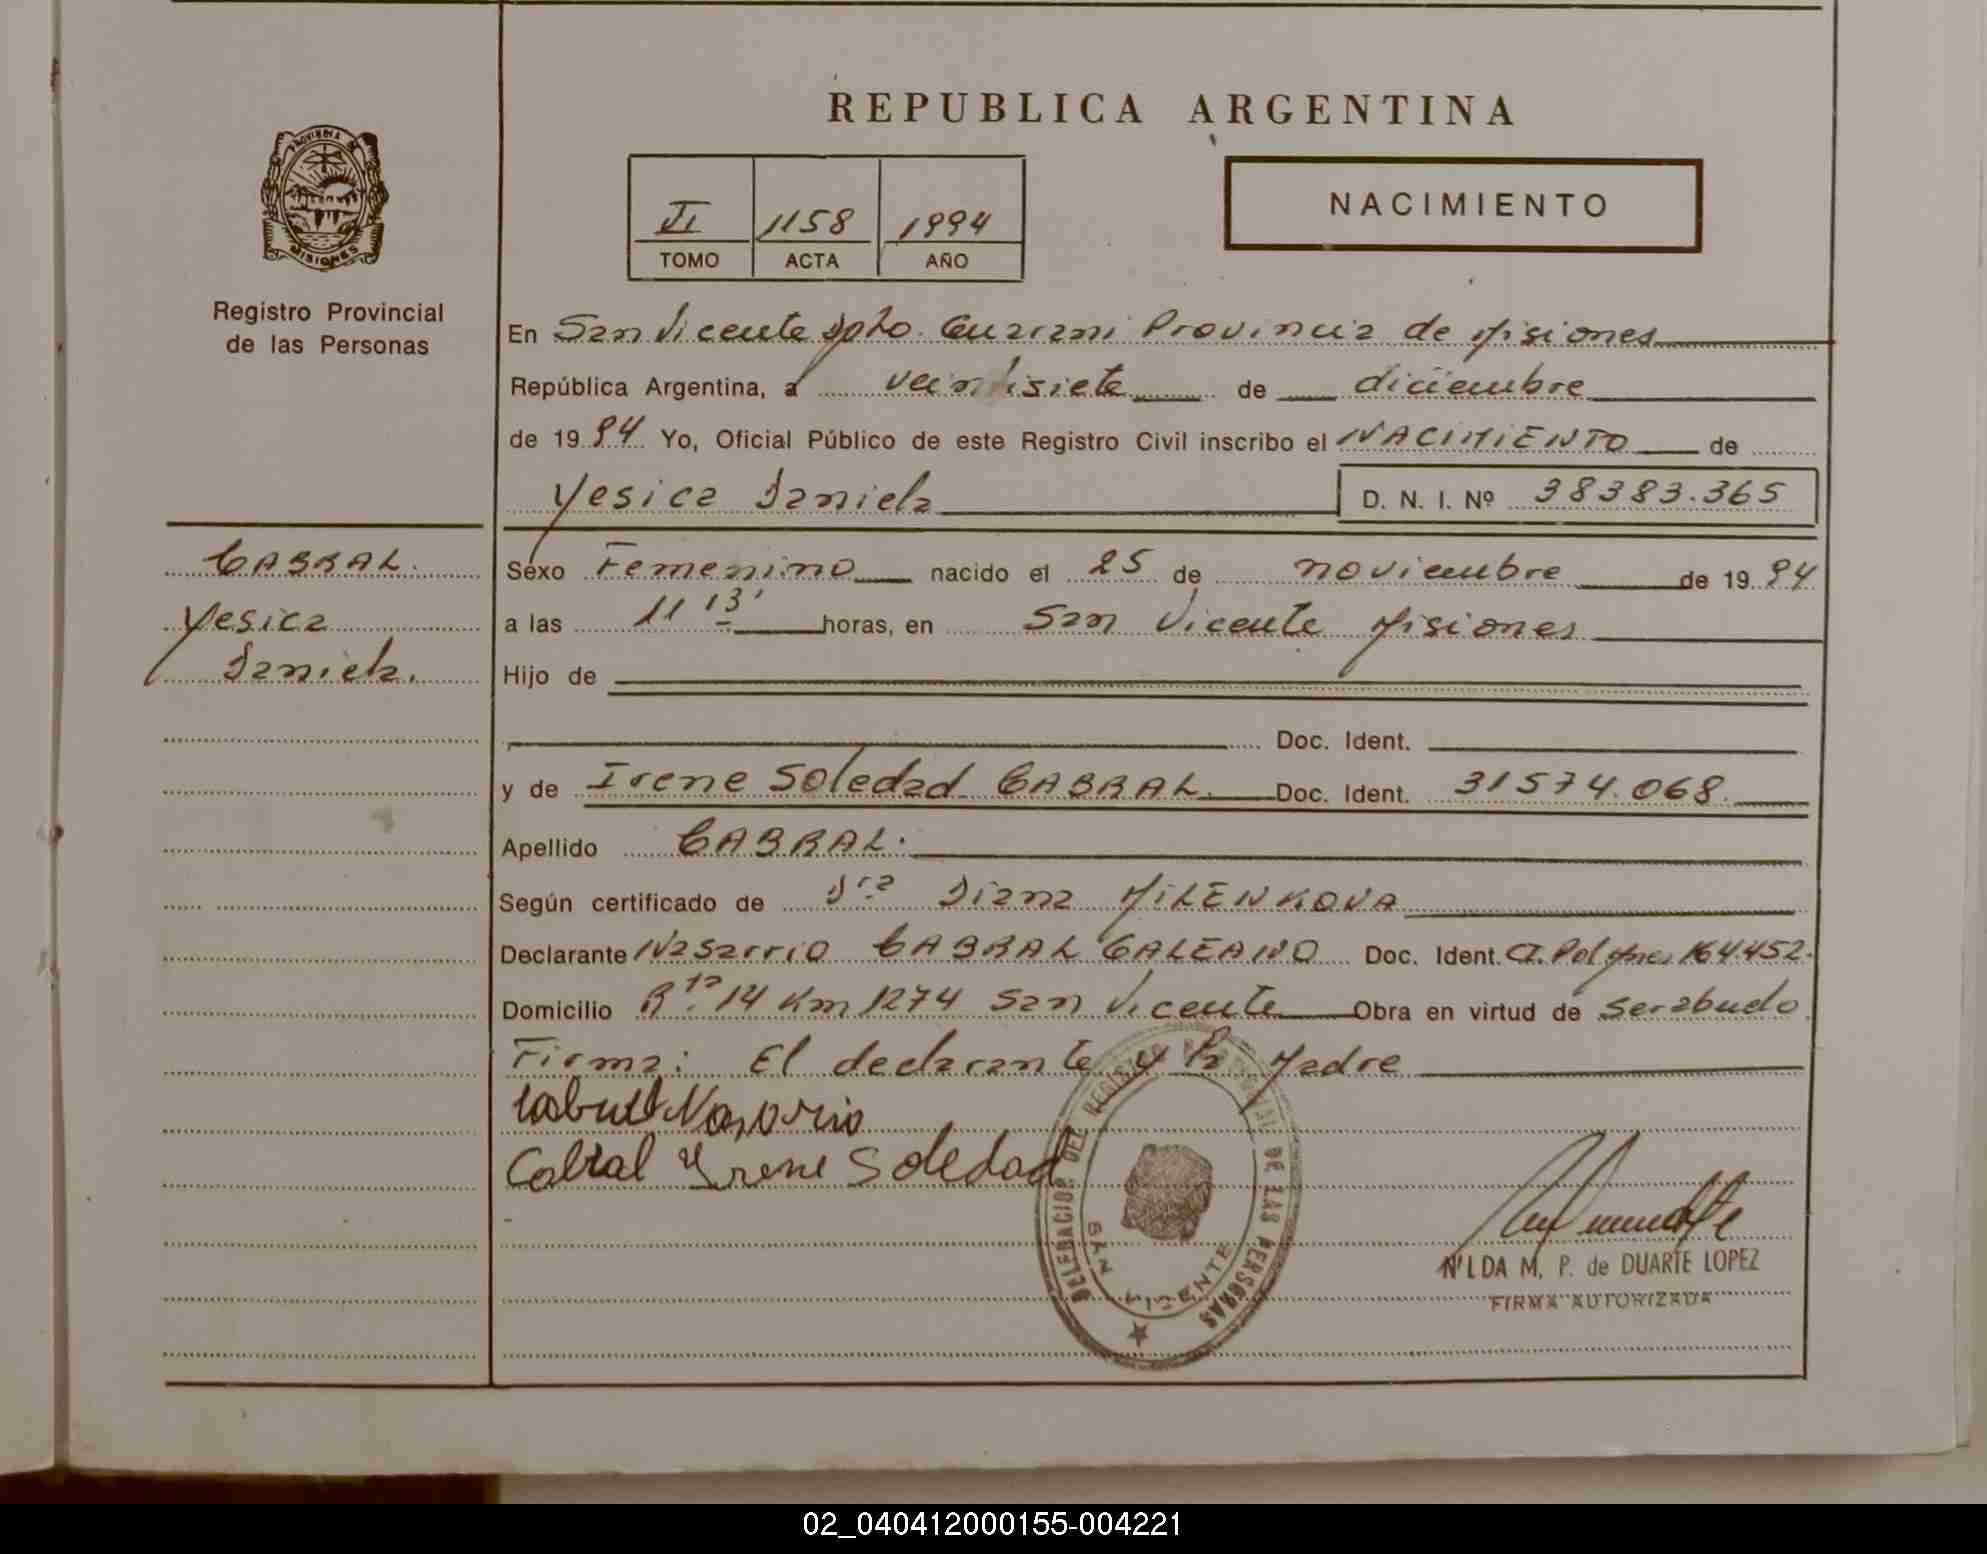 REPUBLICA ARGENTINA
PROVINCIA DE
MISIONES
Registro Provincial
de las Personas
VI 1158 1994
TOMO ACTA AÑO
NACIMIENTO
En San Vicente Dpto. Guarani Provincia de Misiones
República Argentina, a veintisiete de diciembre
de 1994 Yo, Oficial Público de este Registro Civil inscribo el NACIMIENTO de
Yesica Daniela D. N. I. Nº 38383.365
CABRAL.
Yesica
Daniela.
Sexo Femenino nacido el 25 de noviembre de 1994
a las 11 13' horas, en San Vicente Misiones
Hijo de
Doc. Ident.
y de Irene Soledad CABRAL. Doc. Ident. 31574.068.
Apellido CABRAL.
Según certificado de Dra Diana MILENKOVA
Declarante Nasarrio CABRAL GALEANO Doc. Ident. CI. Pol Mnes 164.452.
Domicilio Rta 14 Km 1274 San Vicente Obra en virtud de ser abuelo
Firma: El declarante y la Madre
Cabral Nasario
Cabral Yrene Soledad
DELEGACION DEL REGISTRO PROVINCIAL DE LAS PERSONAS
SAN VICENTE
NILDA M. P. de DUARTE LOPEZ
FIRMA AUTORIZADA
02_040412000155-004221